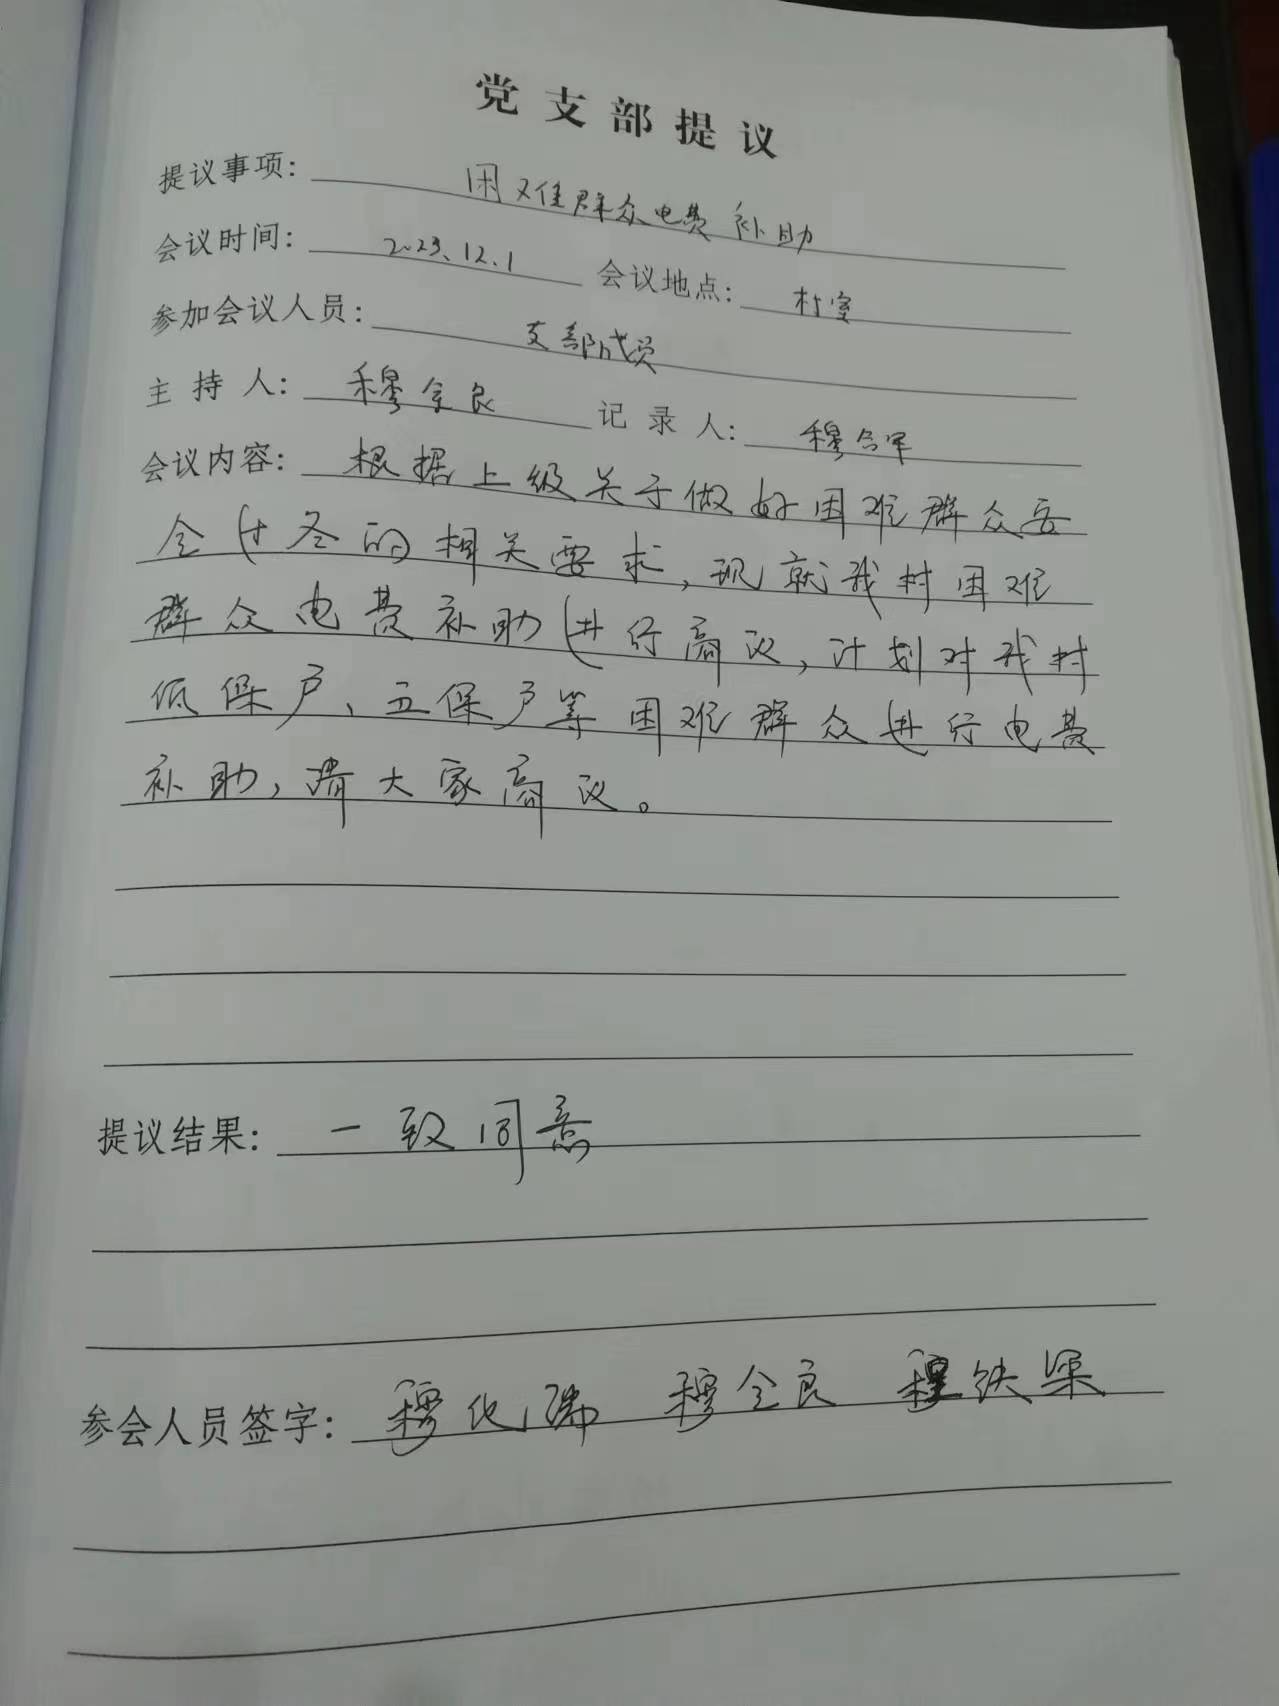 党支部提议
提议事项: 困难群众电费补助
会议时间: 2023.12.1 会议地点: 村室
参加会议人员: 支部成员
主持人: 穆全良 记录人: 穆合军
会议内容: 根据上级关于做好困难群众安
全过冬的相关要求,现就我村困难
群众电费补助进行商议,计划对我村
低保户、五保户等困难群众进行电费
补助,请大家商议。
提议结果: 一致同意
参会人员签字: 穆化 穆全良 穆铁梁